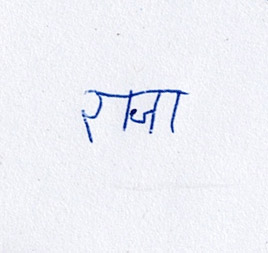 राजा